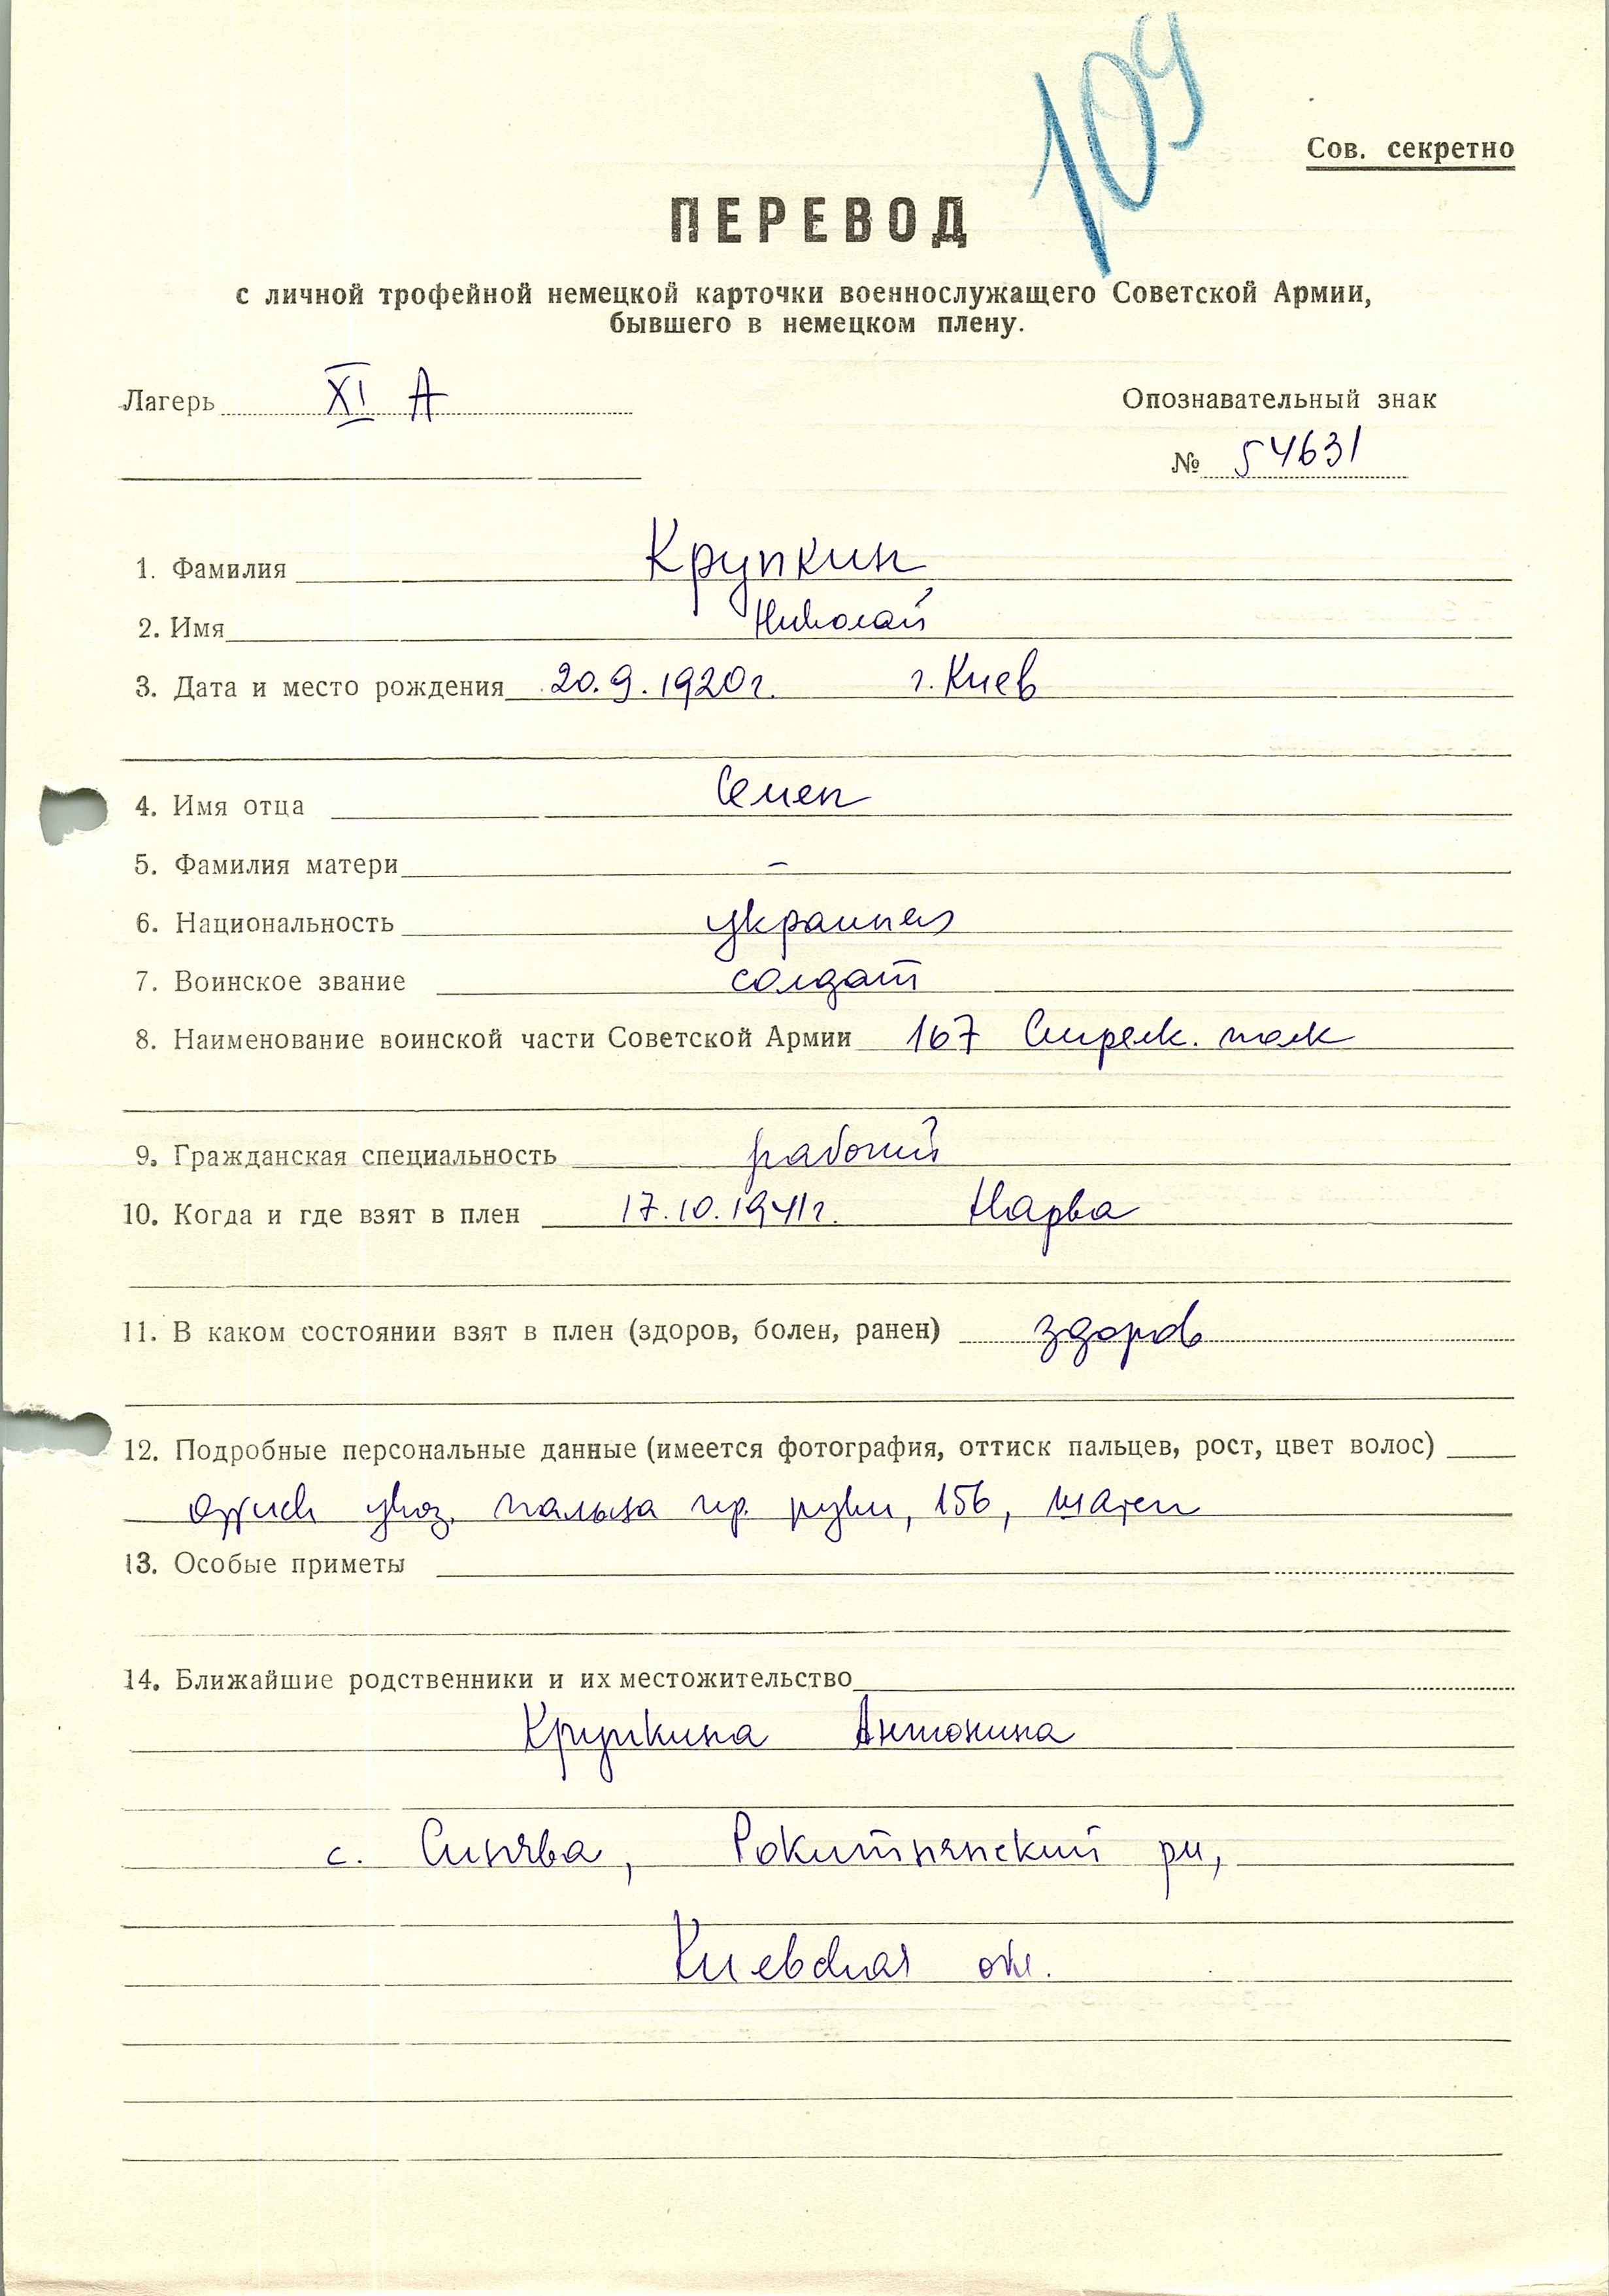 109
Сов. секретно
ПЕРЕВОД
с личной трофейной немецкой карточки военнослужащего Советской Армии,
бывшего в немецком плену.
Лагерь XI А
Опознавательный знак
№ 54631
1. Фамилия Крупкин
2. Имя Николай
3. Дата и место рождения 20.9.1920г. г. Киев
4. Имя отца Семен
5. Фамилия матери –
6. Национальность украинец
7. Воинское звание солдат
8. Наименование воинской части Советской Армии 167 Стрелк. полк
9. Гражданская специальность рабочий
10. Когда и где взят в плен 17.10.1941г. Нарва
11. В каком состоянии взят в плен (здоров, болен, ранен) здоров
12. Подробные персональные данные (имеется фотография, оттиск пальцев, рост, цвет волос)
оттиск указ. пальца пр. руки, 156, шатен
13. Особые приметы
14. Ближайшие родственники и их местожительство
Крупкина Антонина
с. Синява, Рокитнянский рн,
Киевская обл.